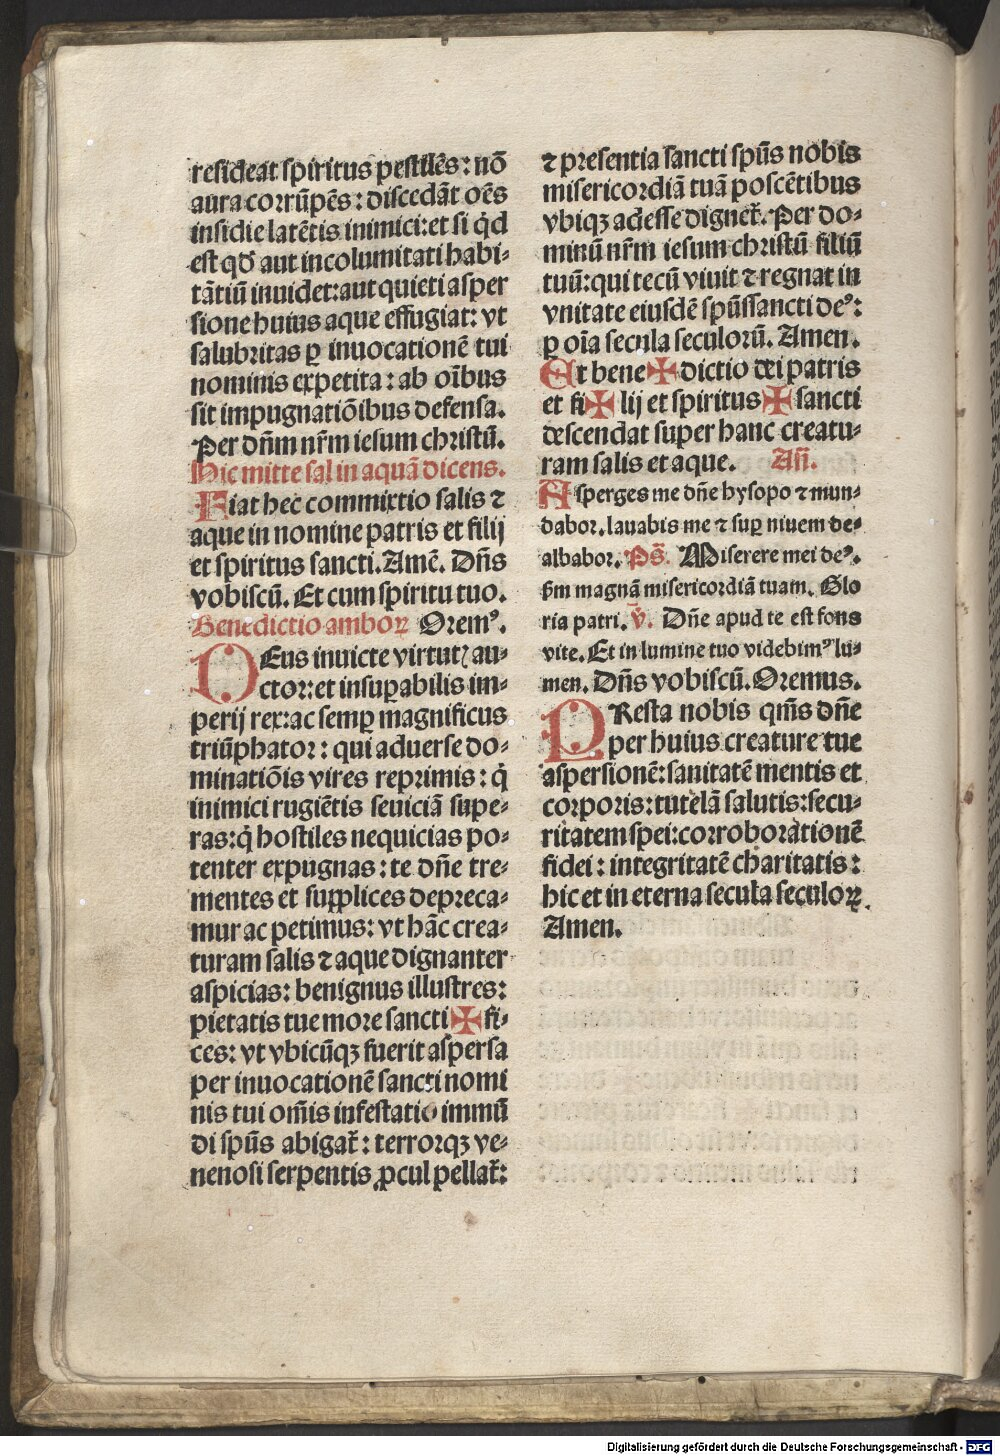 resideat spiritus pestilēs: nō
aura corrūpēs: discedāt oēs
insidie latētis inimici: et si q̇d
est qđ aut incolumitati habi-
tātiū inuidet: aut quieti asper
sione huius aque effugiat: vt
salubritas ꝑ inuocationē tui
nominis expetita: ab oībus
sit impugnatiōibus defensa.
Per dn̄m nr̄m iesum christū.
Hic mitte sal in aquā dicens.
Fiat hec commixtio salis ⁊
aque in nomine patris et filij
et spiritus sancti. Amē. Dn̄s
vobiscū. Et cum spiritu tuo.
Benedictio amboꝝ Oremꝰ.
DEus inuicte virtutꝭ au-
ctor: et insuꝑabilis im-
perij rex: ac semꝑ magnificus
triūphator: qui aduerse do-
minatiōis vires reprimis: q̇
inimici rugiētis seuiciā supe-
ras: q̇ hostiles nequicias po-
tenter expugnas: te dn̄e tre-
mentes et supplices depreca-
mur ac petimus: vt hāc crea-
turam salis ⁊ aque dignanter
aspicias: benignus illustres:
pietatis tue more sancti✠fi-
ces: vt vbicūqꝫ fuerit aspersa
per inuocationē sancti nomi
nis tui om̄is infestatio immū
di spūs abigat᷑: terrorqꝫ ve-
nenosi serpentis ꝓcul pellat᷑:
⁊ presentia sancti spūs nobis
misericordiā tuā poscētibus
vbiqꝫ adesse dignet᷑. Per do-
minū nr̄m iesum christū filiū
tuū: qui tecū viuit ⁊ regnat in
vnitate eiusdē spūssancti deꝰ:
ꝑ oīa secula seculorū. Amen.
Et bene✠dictio dei patris
et fi✠lij et spiritus✠sancti
descendat super hanc creatu-
ram salis et aque. Añ.
Asperges me dn̄e hysopo ⁊ mun-
dabor. lauabis me ⁊ suꝑ niuem de-
albabor. Ps̄. Miserere mei deꝰ.
s̄m magnā misericordiā tuam. Glo
ria patri. v̄. Dn̄e apud te est fons
vite. Et in lumine tuo videbimꝰ lu-
men. Dn̄s vobiscū. Oremus.
PResta nobis qm̄s dn̄e
per huius creature tue
aspersionē: sanitatē mentis et
corporis: tutelā salutis: secu-
ritatem spei: corroborationē
fidei: integritatē charitatis:
hic et in eterna secula seculoꝝ.
Amen.
Digitalisierung gefördert durch die Deutsche Forschungsgemeinschaft - DFG